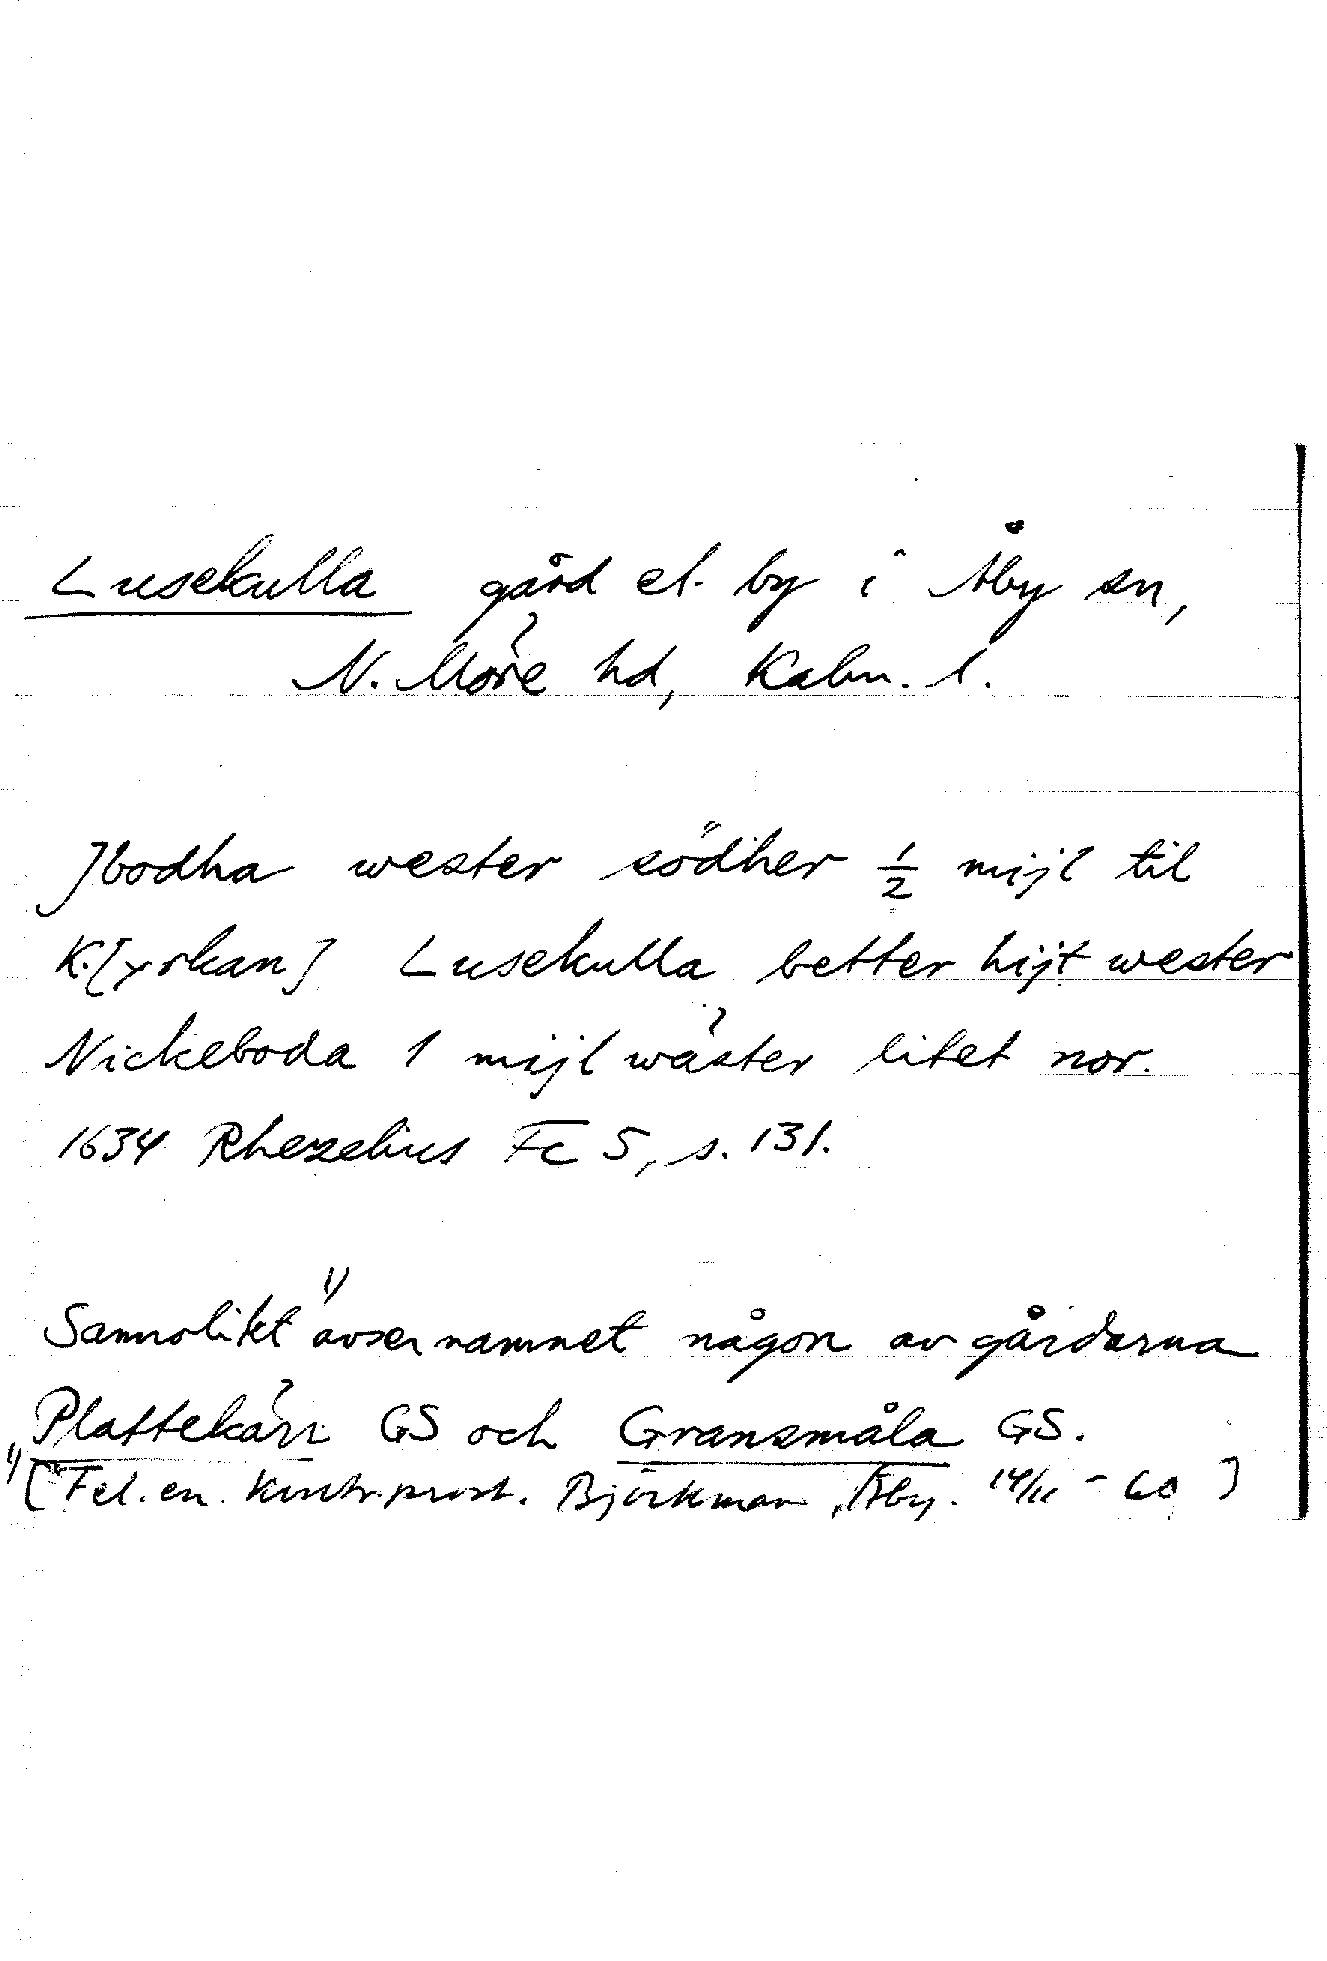 Lusekulla gård el. by i Åby sn,
N. Möre hd, Kalm. l.
Jbodha wester södher 1/2 mijl til
K.[yrkan] Lusekulla better hijt wester
Nickeboda 1 mijl wäster litet nor.
1634 Rhezelius Fc 5, s. 131.
Sannolikt 1) avser namnet någon av gårdarna
Plattekärr GS och Gransmåla GS.
1) [Tel. en. kontr.prost. Björkman, Åby. 14/11 - 60]